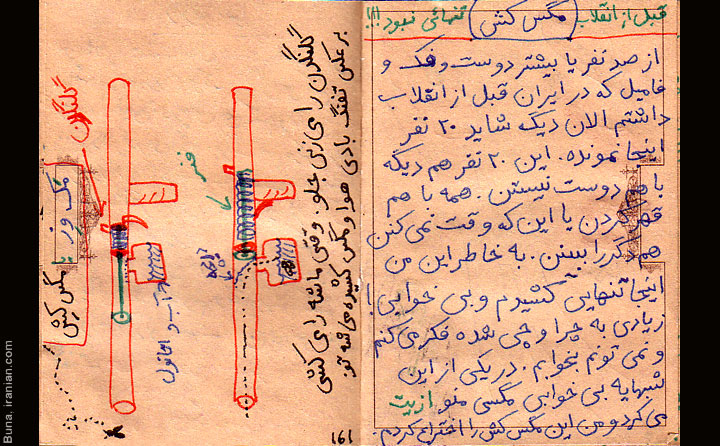 قبل از انقلاب (مگس کش) تنهائی نبود!!!
از صد نفر یا بیشتر دوست و فک و
فامیل که در ایران قبل از انقلاب
داشتم الان دیگ شاید ۲۰ نفر
اینجا نمونده. این ۲۰ نفر هم دیگه
با هم دوست نیستن. همه با هم
قهر کردن یا این که وقت نمی کنن
همدیگر را ببینن. به خاطر این من
اینجا تنهایی کشیدم و بی خوابی
زیادی به چرا و چی شده فکر می کنم
و نمی تونم بخوابم. در یکی از این
شبهایه بی خوابی مگسی منو ازیت
می کرد و من این مگس کش را اختراع کردم.
بر عکس تفنگ بادی هوا و مگس کشیده می شه تو.
گلنگدن را می زنی جلو. وقتی ماشه را می کشی
فنر
گلنگدن
آب و الکل
مگس کش
161
Buna, iranian.com